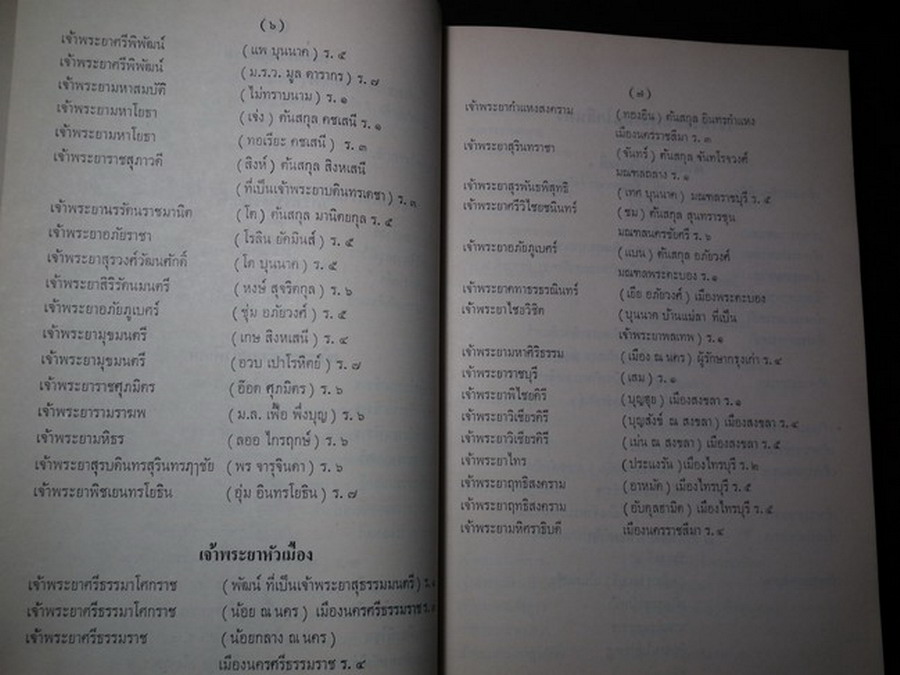 (๖)
เจ้าพระยาศรีพิพัฒน์ (แพ บุนนาค) ร. ๕
เจ้าพระยาศรีพิพัฒน์ (ม.ร.ว. มูล ดารากร) ร. ๗
เจ้าพระยามหาสมบัติ (ไม่ทราบนาม) ร. ๑
เจ้าพระยามหาโยธา (เจ่ง) ต้นสกุล คชเสนี ร. ๑
เจ้าพระยามหาโยธา (ทอเรียะ คชเสนี) ร. ๓
เจ้าพระยาราชสุภาวดี (สิงห์) ต้นสกุล สิงหเสนี
(ที่เป็นเจ้าพระยาบดินทรเดชา) ร. ๓
เจ้าพระยานรรัตนราชมานิต (โต) ต้นสกุล มานิตยกุล ร. ๕
เจ้าพระยาอภัยราชา (โรลิน ยัคมินส์) ร. ๕
เจ้าพระยาสุรวงศ์วัฒนศักดิ์ (โต บุนนาค) ร. ๕
เจ้าพระยาสิริรัตนมนตรี (หงษ์ สุจริตกุล) ร. ๖
เจ้าพระยาอภัยภูเบศร์ (ชุ่ม อภัยวงศ์) ร. ๕
เจ้าพระยามุขมนตรี (เกษ สิงหเสนี) ร. ๔
เจ้าพระยามุขมนตรี (อวบ เปาโรหิตย์) ร. ๗
เจ้าพระยาราชศุภมิตร (อ๊อด ศุภมิตร) ร. ๖
เจ้าพระยารามราฆพ (ม.ล. เฟื้อ พึ่งบุญ) ร. ๖
เจ้าพระยามหิธร (ลออ ไกรฤกษ์) ร. ๖
เจ้าพระยาสุรบดินทรสุรินทรฦๅชัย (พร จารุจินดา) ร. ๖
เจ้าพระยาพิชเยนทรโยธิน (อุ่ม อินทรโยธิน) ร. ๗
เจ้าพระยาหัวเมือง
เจ้าพระยาศรีธรรมาโศกราช (พัฒน์ ที่เป็นเจ้าพระยาสุธรรมมนตรี) ร.
เจ้าพระยาศรีธรรมาโศกราช (น้อย ณ นคร) เมืองนครศรีธรรมราช ร.
เจ้าพระยาศรีธรรมราช (น้อยกลาง ณ นคร)
เมืองนครศรีธรรมราช ร. ๔
(๗)
เจ้าพระยากำแหงสงคราม (ทองอิน) ต้นสกุล อินทรกำแหง
เมืองนครราชสีมา ร. ๓
เจ้าพระยาสุรินทราชา (จันทร์) ต้นสกุล จันทโรจวงศ์
มณฑลถลาง ร. ๑
เจ้าพระยาสุรพันธพิสุทธิ (เทศ บุนนาค) มณฑลราชบุรี ร. ๕
เจ้าพระยาศรีวิไชยชนินทร์ (ชม) ต้นสกุล สุนทรารชุน
มณฑลนครชัยศรี ร. ๖
เจ้าพระยาอภัยภูเบศร์ (แบน) ต้นสกุล อภัยวงศ์
มณฑลพระตะบอง ร. ๑
เจ้าพระยาคทาธรธรณินทร์ (เยีย อภัยวงศ์) เมืองพระตะบอง
เจ้าพระยาไชยวิชิต (บุนนาค บ้านแม่ลา ที่เป็น
เจ้าพระยาพลเทพ) ร. ๑
เจ้าพระยามหาศิริธรรม (เมือง ณ นคร) ผู้รักษากรุงเก่า ร. ๔
เจ้าพระยาราชบุรี (เสม) ร. ๑
เจ้าพระยาพิไชยคิรี (บุญฮุย) เมืองสงขลา ร. ๑
เจ้าพระยาวิเชียรคิรี (บุญสังข์ ณ สงขลา) เมืองสงขลา ร. ๔
เจ้าพระยาวิเชียรคิรี (เม่น ณ สงขลา) เมืองสงขลา ร. ๕
เจ้าพระยาไทร (ประแงรัน) เมืองไทรบุรี ร. ๒
เจ้าพระยาฤทธิสงคราม (อาหมัด) เมืองไทรบุรี ร. ๕
เจ้าพระยาฤทธิสงคราม (อับดุลฮามิด) เมืองไทรบุรี ร. ๕
เจ้าพระยามหิศราธิบดี เมืองนครราชสีมา ร. ๔